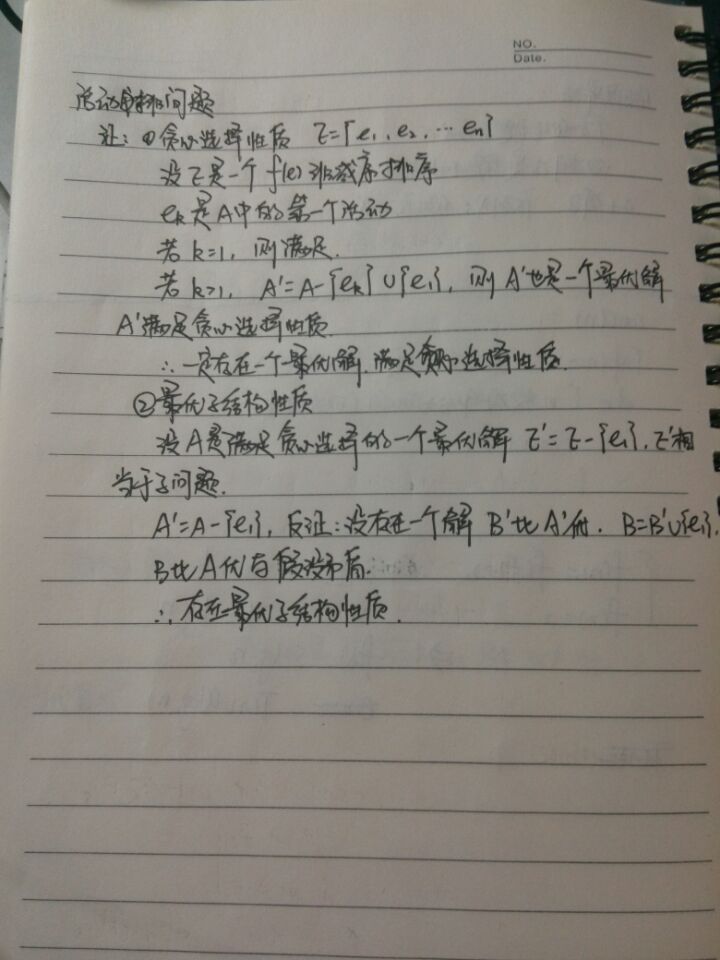 NO.
Date.
活动安排问题
证：①贪心选择性质 E={e₁、e₂、…eₙ}
设E是一个f(e)非减序排序
eₖ是A中的第一个活动
若k=1，则满足.
若k>1，A'=A-{eₖ}∪{e₁}，则A'也是一个最优解
A'满足贪心选择性质.
∴一定存在一个最优解.满足贪心选择性质.
②最优子结构性质
设A是满足贪心选择的一个最优解 E'=E-{e₁}，E'相
当于子问题.
A'=A-{e₁}，反证：设存在一个解 B'比A'优. B=B'∪{e₁}.
B比A优与假设矛盾.
∴存在最优子结构性质.